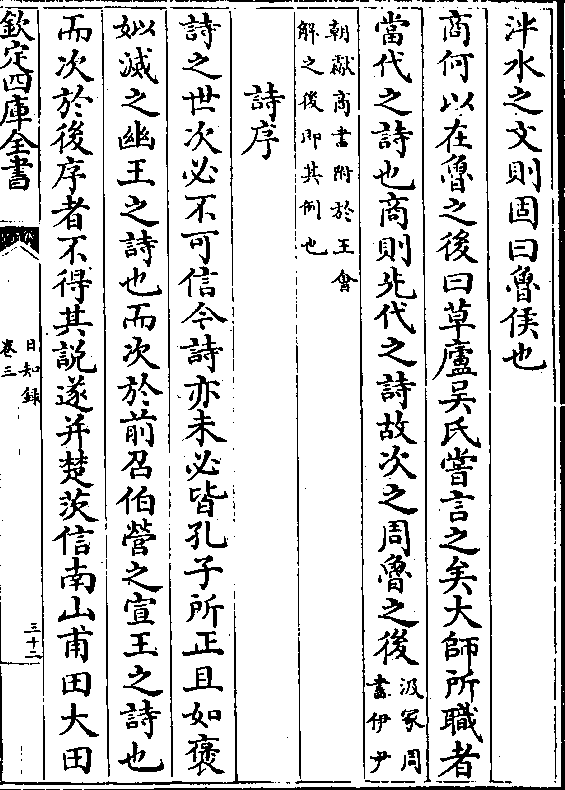 泮水之文則固曰魯侯也
商何以在魯之後曰草廬吳氏嘗言之矣大師所職者
當代之詩也商則先代之詩故次之周魯之後汲冢周
書伊尹
朝獻商書附於王會
解之後即其例也
詩序
詩之世次必不可信今詩亦未必皆孔子所正且如褒
姒滅之幽王之詩也而次於前召伯營之宣王之詩也
而次於後序者不得其説遂并楚茨信南山甫田大田
欽定四庫全書
日知錄
卷三
三十二